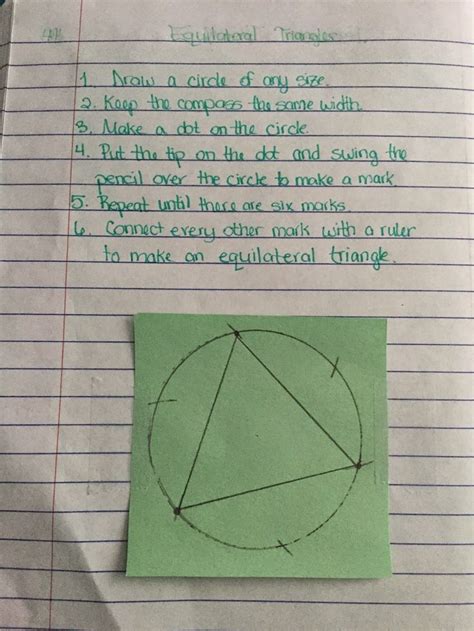 Equilateral Triangles
1. Draw a circle of any size.
2. Keep the compass the same width.
3. Make a dot on the circle.
4. Put the tip on the dot and swing the
pencil over the circle to make a mark.
5. Repeat until there are six marks.
6. Connect every other mark with a ruler
to make an equilateral triangle.